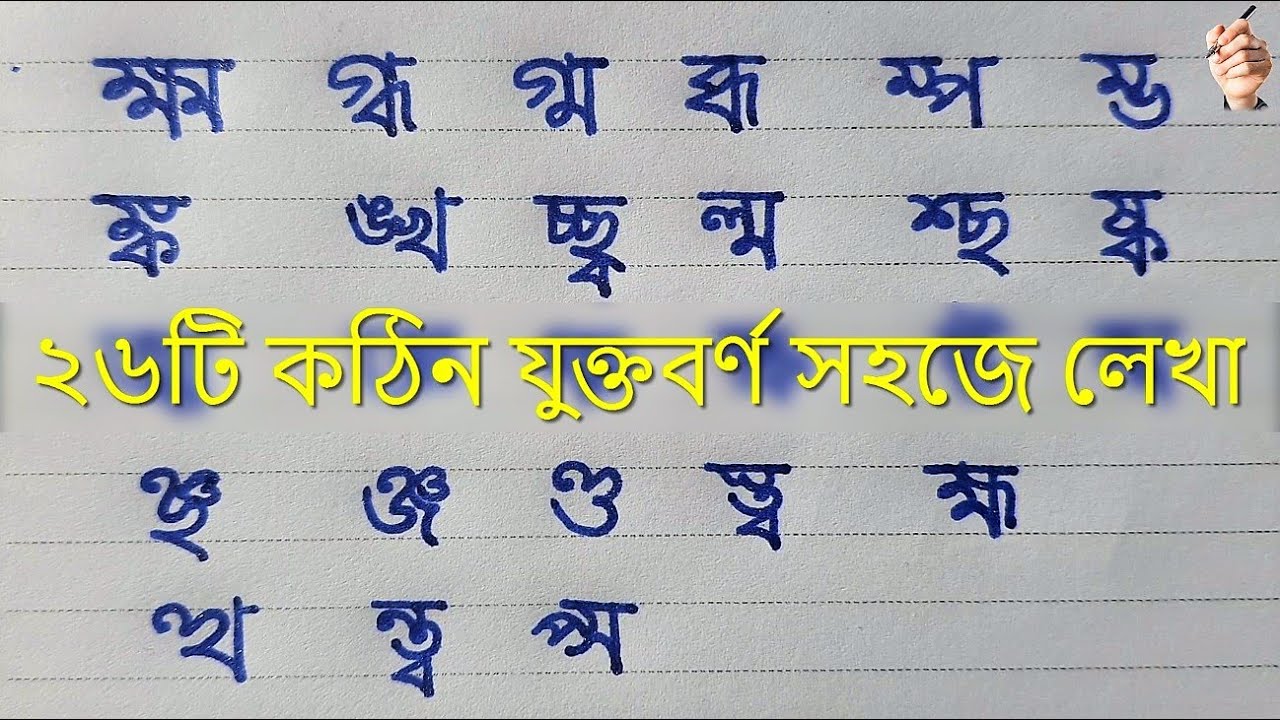 ক্ষ্ম গ্ধ গ্ম ব্ধ ম্প ম্ভ
ঙ্ক ঙ্খ চ্ছ্ব ল্ম শ্ছ ষ্ক
২৬টি কঠিন যুক্তবর্ণ সহজে লেখা
ঞ্ছ ঞ্জ ণ্ড স্ত্ব হ্ম
ত্থ ন্ত্ব